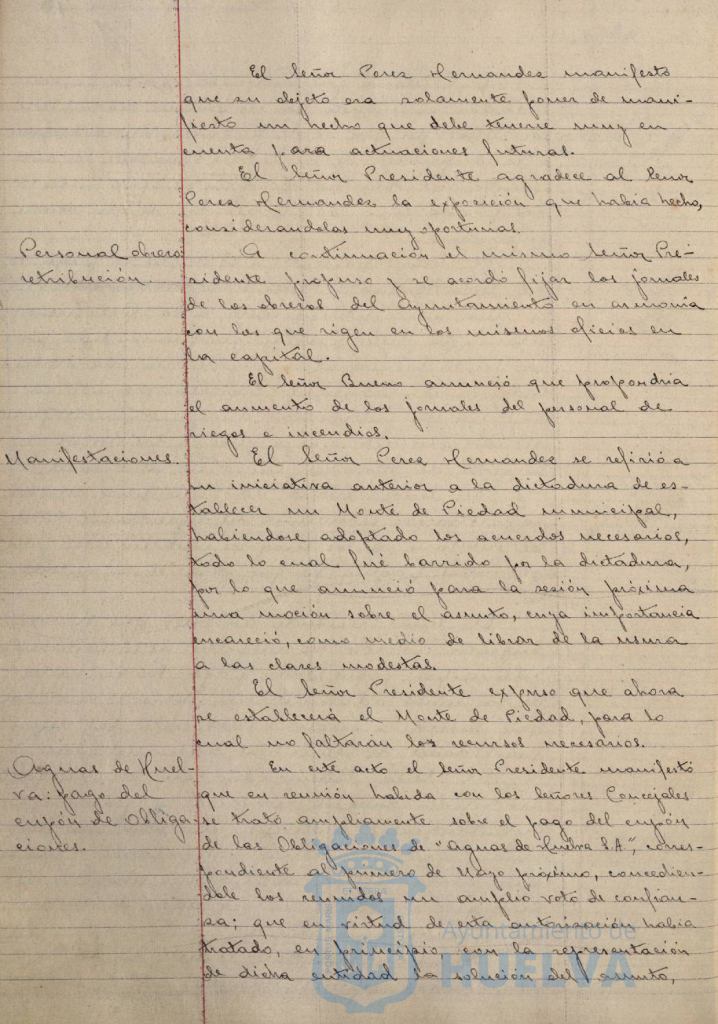 El Señor Perez Hernandez manifestó
que su objeto era solamente poner de mani-
fiesto un hecho que debe tenerse muy en
cuenta para actuaciones futuras.
El Señor Presidente agradece al Señor
Perez Hernandez la exposición que habia hecho,
considerandolas muy oportunas.
Personal obrero:
retribución.
A continuación el mismo Señor Pre-
sidente propuso y se acordó fijar los jornales
de los obreros del Ayuntamiento en armonia
con los que rigen en los mismos oficios en
la capital.
El Señor Bueno anunció que propondria
el aumento de los jornales del personal de
riegos e incendios.
Manifestaciones.
El Señor Perez Hernandez se refirió a
su iniciativa anterior a la dictadura de es-
tablecer un Monte de Piedad municipal,
habiendose adoptado los acuerdos necesarios,
todo lo cual fué barrido por la dictadura,
por lo que anunció para la sesión próxima
una moción sobre el asunto, cuya importancia
encareció, como medio de librar de la usura
a las clases modestas.
El Señor Presidente expuso que ahora
se establecerá el Monte de Piedad, para lo
cual no faltarán los recursos necesarios.
Aguas de Huel-
va: pago del
cupón de Obliga-
ciones.
En este acto el Señor Presidente manifestó
que en reunión habida con los Señores Concejales
se trató ampliamente sobre el pago del cupón
de las Obligaciones de "Aguas de Huelva S.A.", corres-
pondiente al primero de Mayo próximo, concedien-
dole los reunidos un amplio voto de confian-
za; que en virtud de esta autorización habia
tratado, en principio, con la representación
de dicha entidad la solución del asunto,
Ayuntamiento de
HUELVA